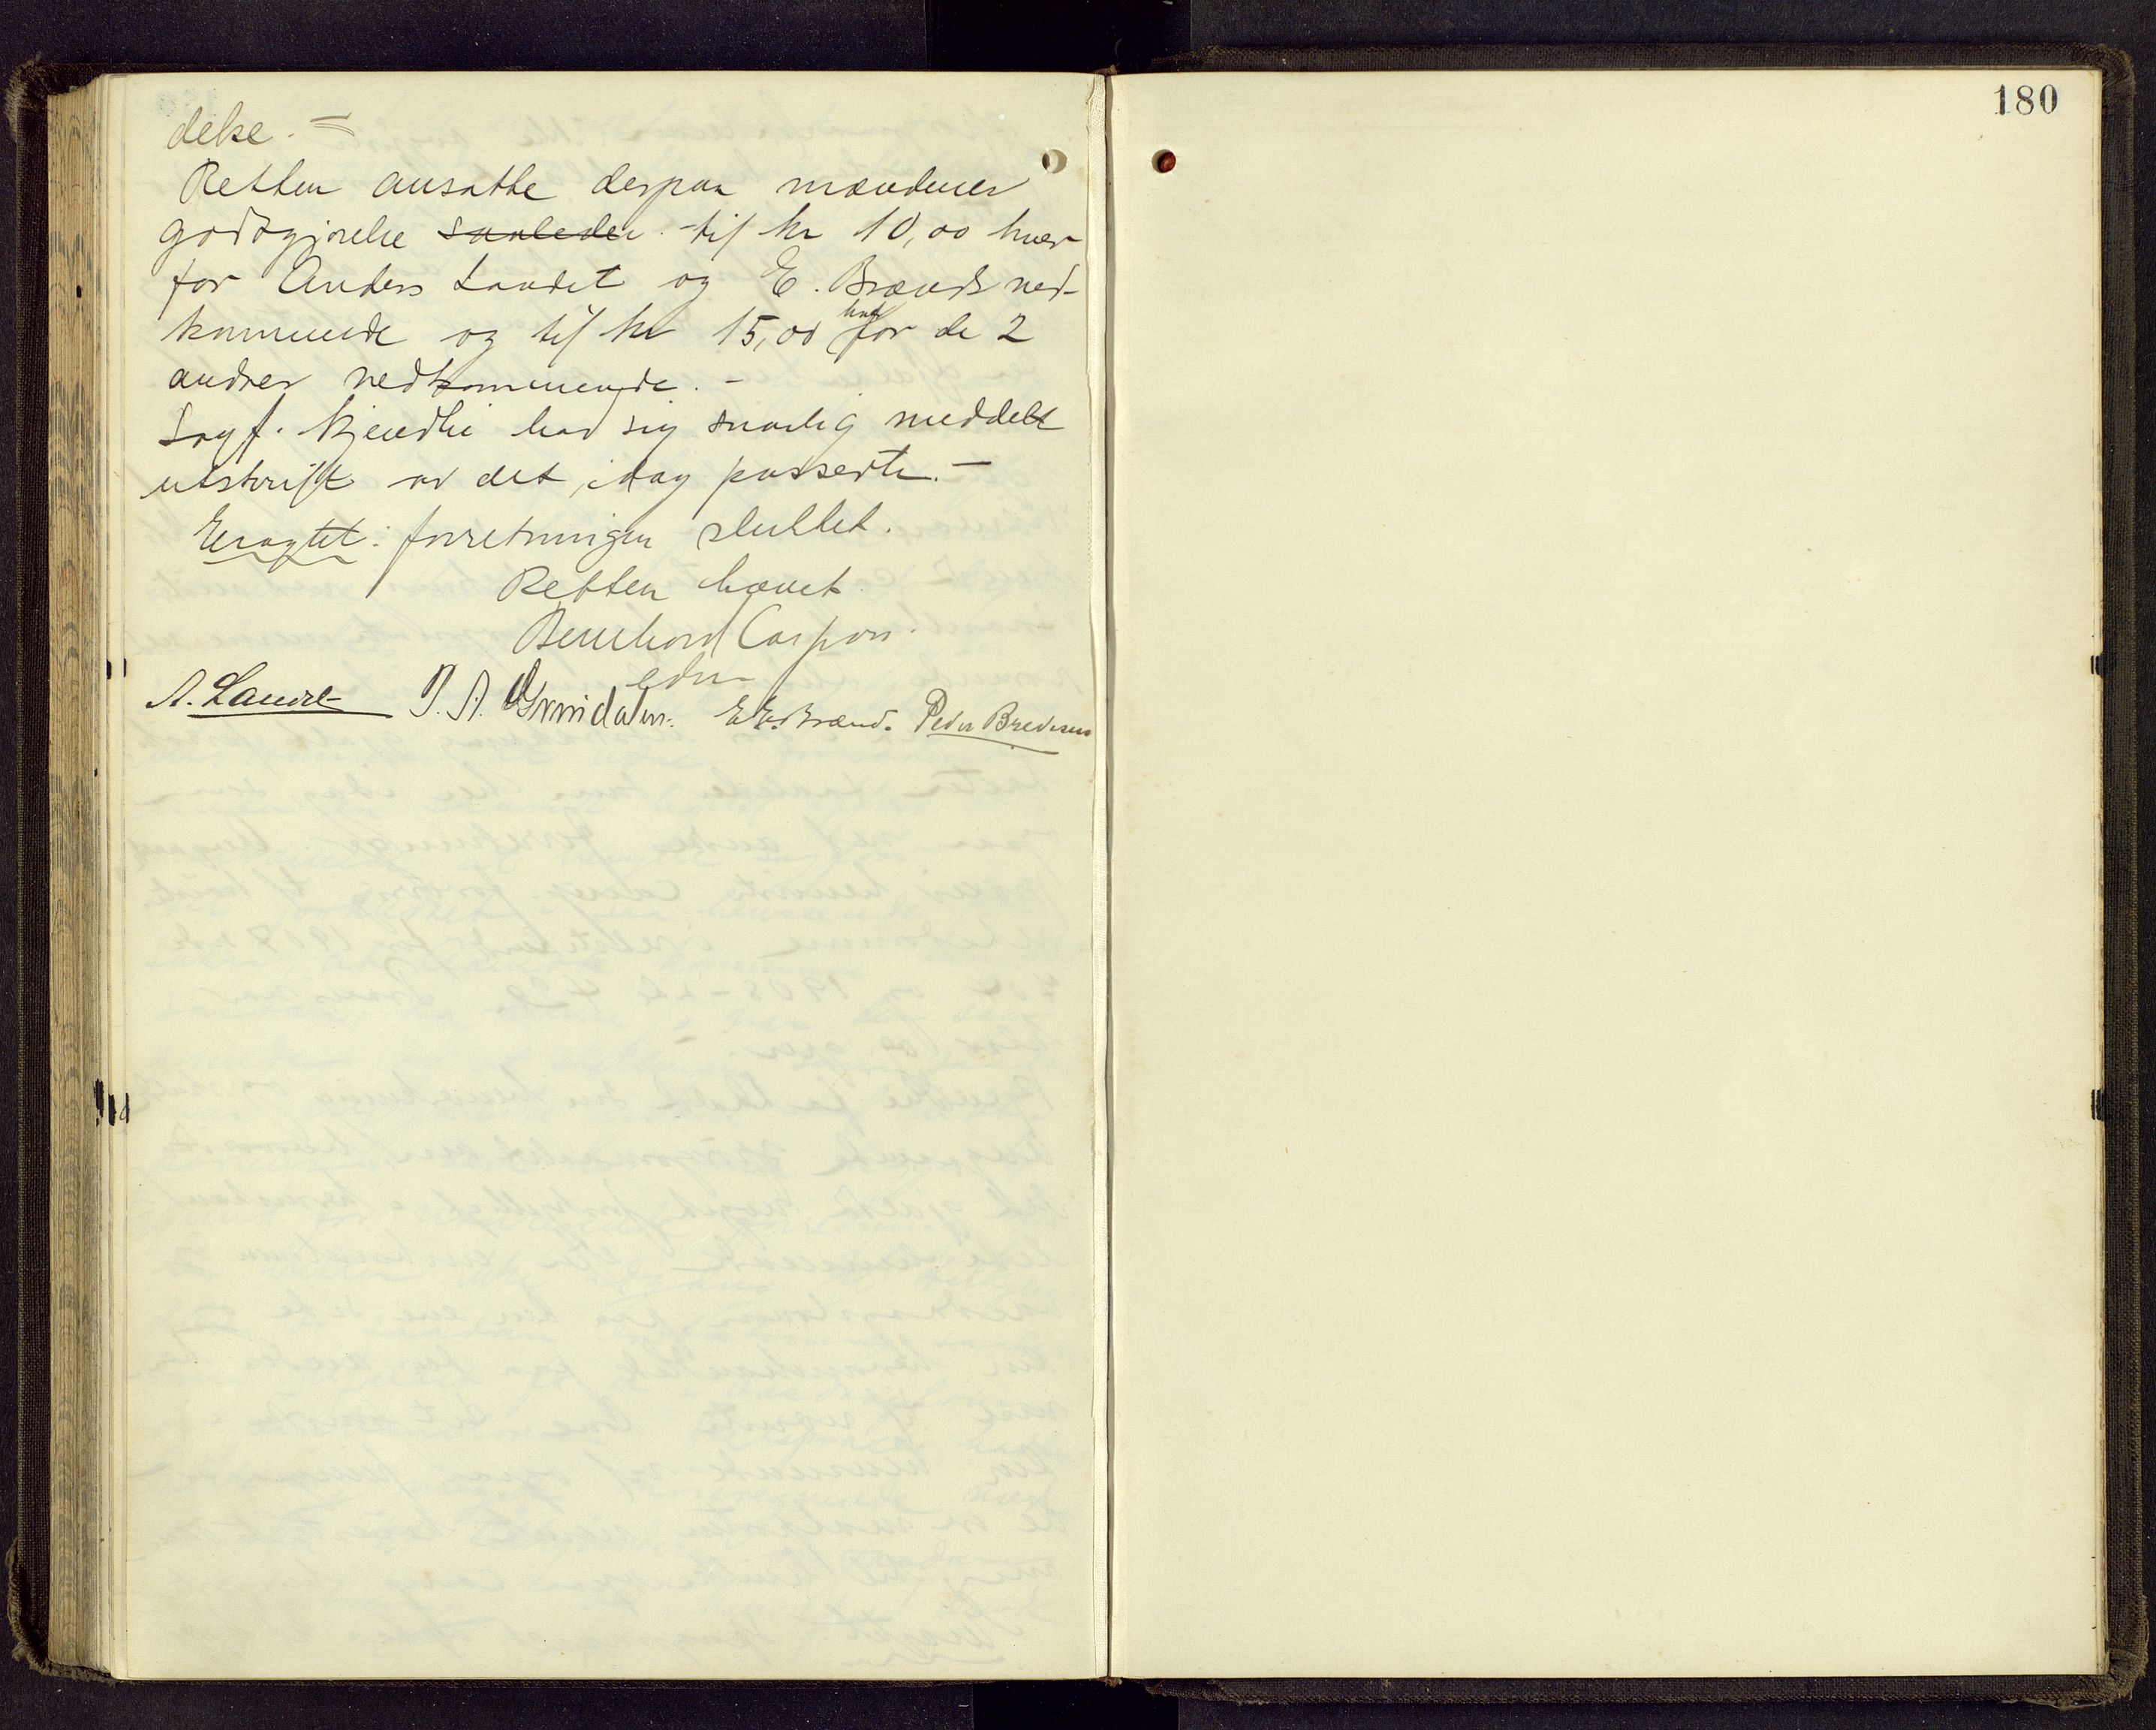 delse. -
Retten ansatte derpaa mændenes
godtgjørelse saaledes til kr 10,00 hver
for Anders Landet og E. Brænds ved-
kommende og til kr 15,00 hver for de 2
andres vedkommende. -
Sagf. Kjendli bad sig snarlig meddelt
utskrift av det idag passerte. -
Eragtet: forretningen sluttet.
Retten hævet
Bernhard Caspari
edm
A. Landet P. A. Grinidalen. E. E. Brænd. Peder Bredesen
180